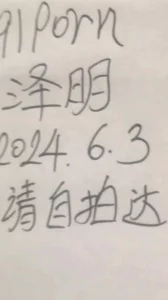 91porn
泽明
2024.6.3
请自拍达